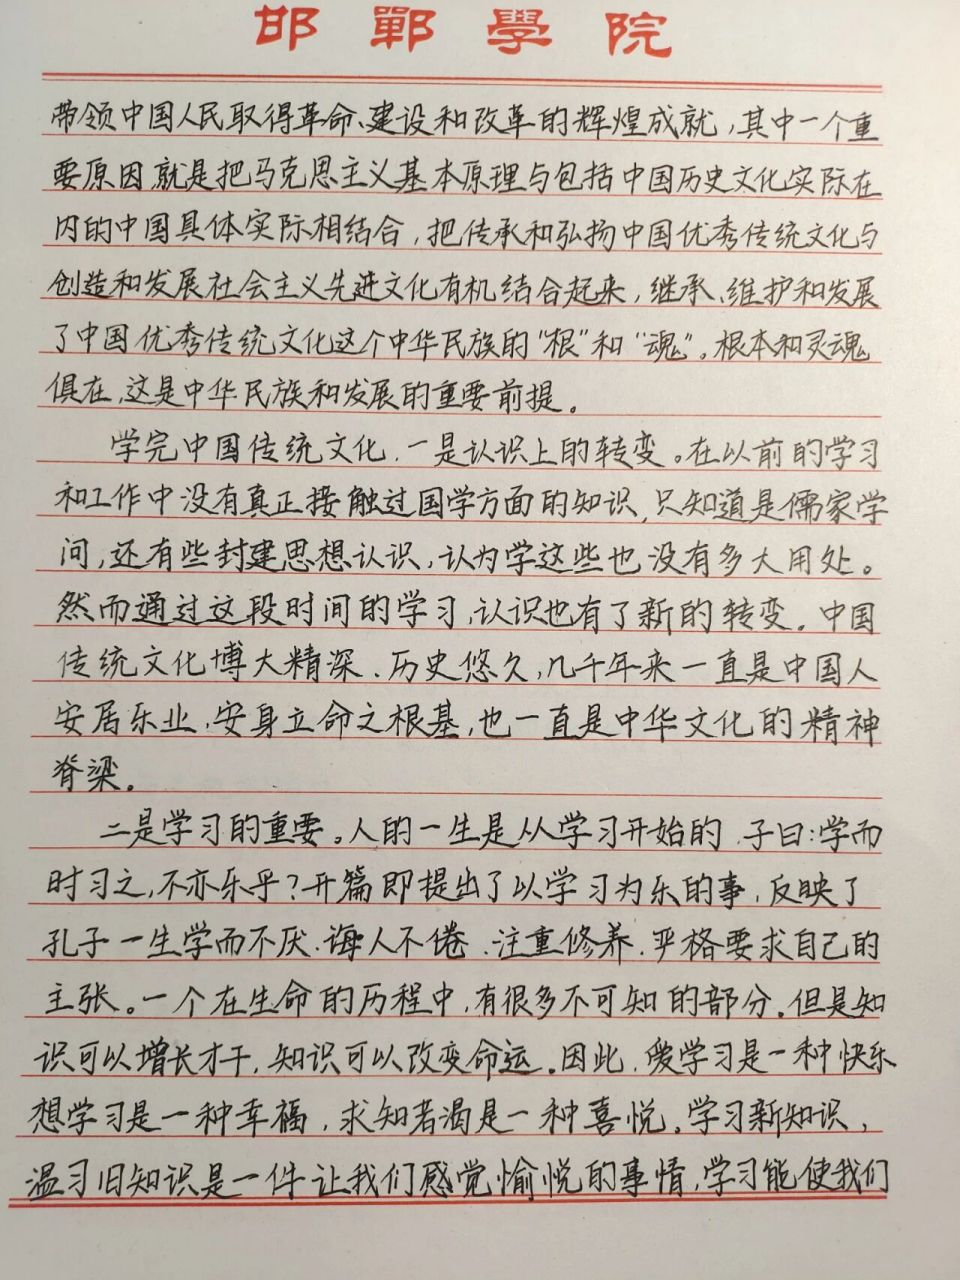 邯鄲學院
带领中国人民取得革命、建设和改革的辉煌成就，其中一个重
要原因就是把马克思主义基本原理与包括中国历史文化实际在
内的中国具体实际相结合，把传承和弘扬中国优秀传统文化与
创造和发展社会主义先进文化有机结合起来，继承、维护和发展
了中国优秀传统文化这个中华民族的“根”和“魂”。根本和灵魂
俱在，这是中华民族和发展的重要前提。
学完中国传统文化，一是认识上的转变。在以前的学习
和工作中没有真正接触过国学方面的知识，只知道是儒家学
问，还有些封建思想认识，认为学这些也没有多大用处。
然而通过这段时间的学习，认识也有了新的转变。中国
传统文化博大精深、历史悠久，几千年来一直是中国人
安居乐业、安身立命之根基，也一直是中华文化的精神
脊梁。
二是学习的重要。人的一生是从学习开始的，子曰：学而
时习之，不亦乐乎？开篇即提出了以学习为乐的事，反映了
孔子一生学而不厌、诲人不倦、注重修养、严格要求自己的
主张。一个在生命的历程中，有很多不可知的部分。但是知
识可以增长才干，知识可以改变命运。因此，爱学习是一种快乐
想学习是一种幸福，求知若渴是一种喜悦。学习新知识，
温习旧知识是一件让我们感觉愉悦的事情，学习能使我们